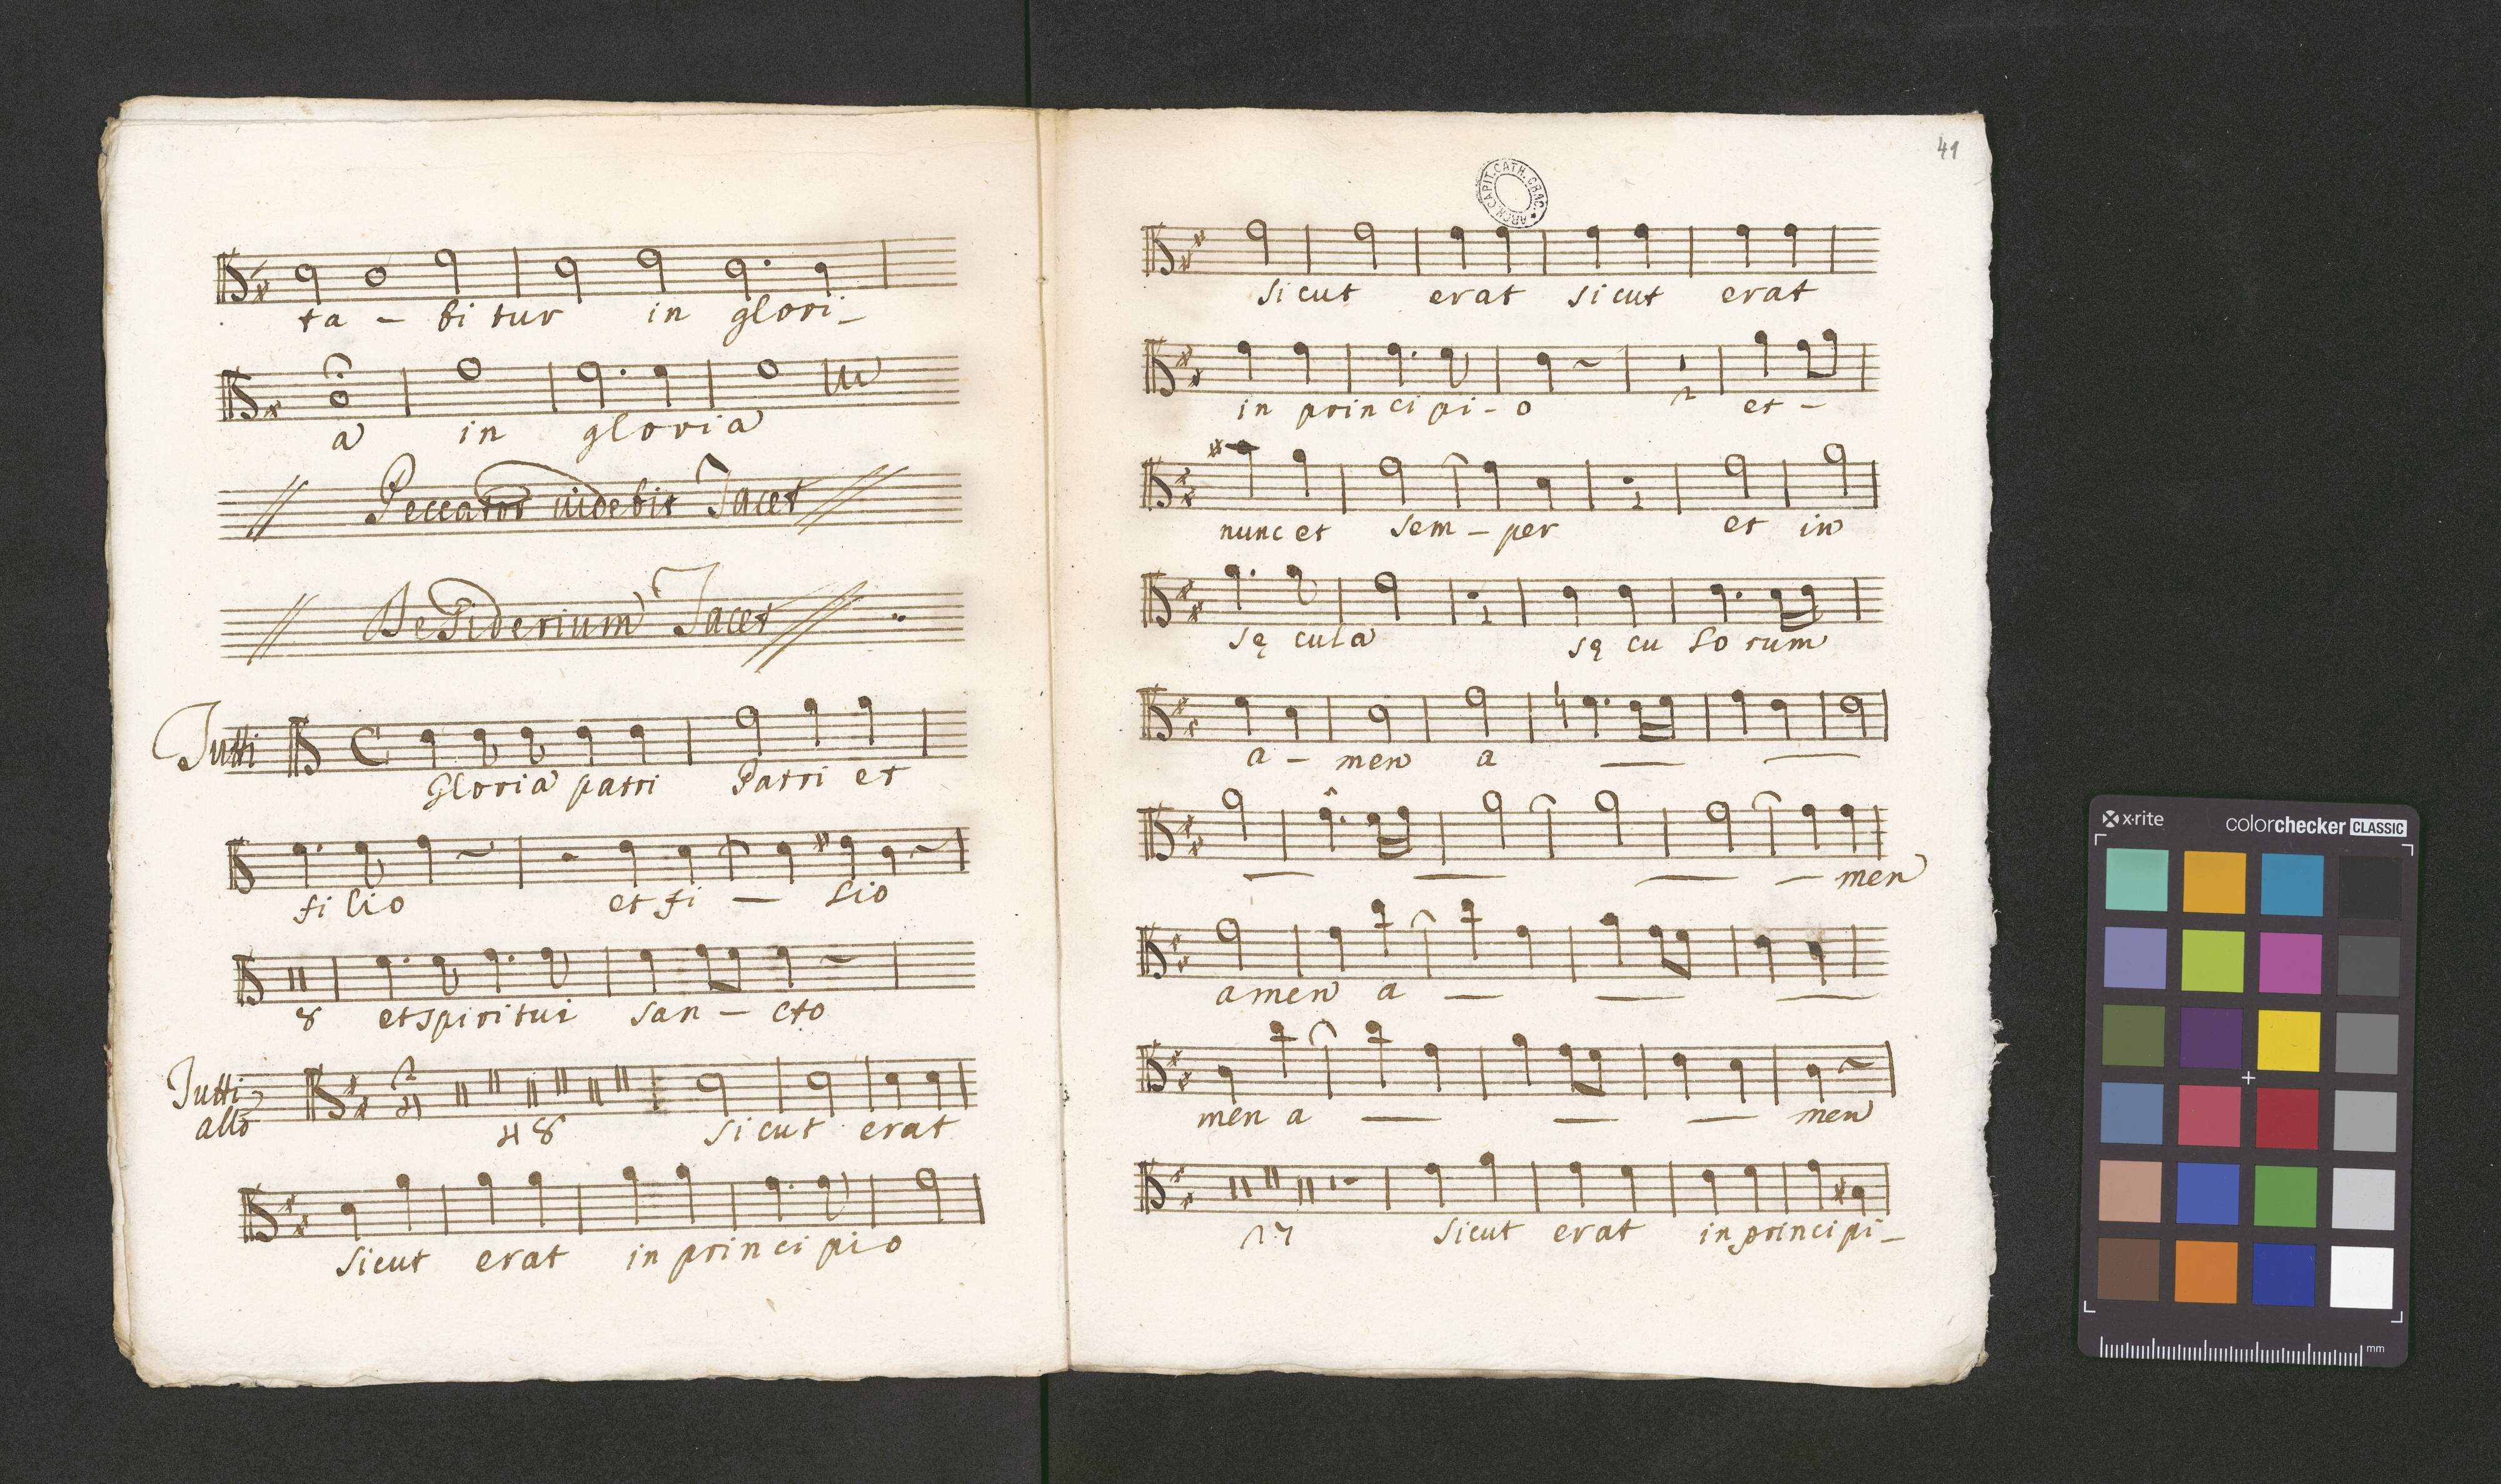 ta - bi tur in glori_
a in gloria
Peccator uidebit Tacet
Desiderium Tacet
Tutti
C
Gloria patri Patri et
fi lio et fi - lio
8 et spiritui san - cto
Tutti
allo
48 sicut erat
sicut erat in principio
41
ARCH. CAPIT. CATH. CRAC. *
sicut erat sicut erat
in principi - o et -
nunc et sem - per et in
sę cula sę cu lo rum
a - men a
men
amen a
men a men
17 sicut erat in principi_
x-rite
colorchecker CLASSIC
mm